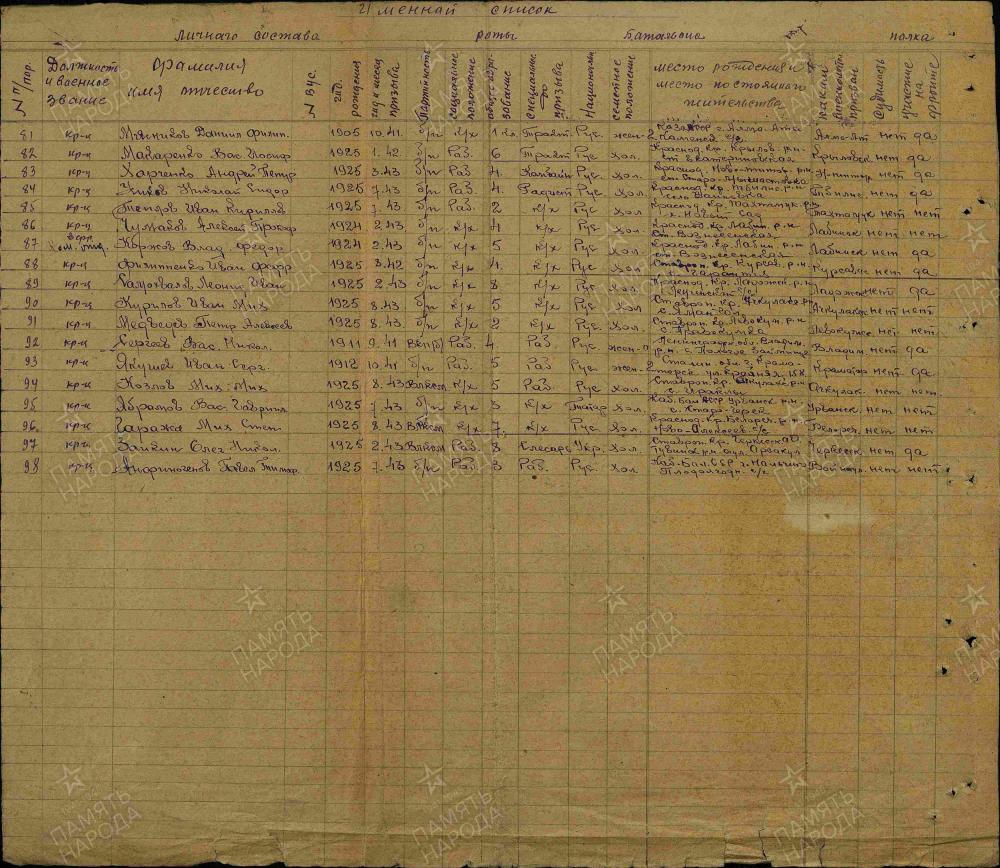 Именной список
личнаго состава роты батальона полка
№ п/пор.
Должность и военное звание
Фамилия имя отчество
№ ВУС.
год. рождения
год и месяц призыва
партийность
социальное положение
общее образование
специальн. до призыва
Национальн
семейное положение
место рождения и место постоянного жительства
каким военкомат. призван
Судимость
участие на фронте
81 кр-ц Мятников Даниил Филип. 1905 10.41. б/п к/х 1 кл. Тракт. Рус. жен-2 Каз ССР г. Алма-Аты Алма-Ат нет да
82 кр-ц Макаренко Вас. Иосиф 1925 1.42. б/п Раб. 6 Тракт Рус хол. Краснод. кр. Крылов. р-н. ст. Екатериновская Крыловск нет да
83 кр-ц Харченко Андрей Петр 1925 3.43 б/п Раб 4. Рус. хол. Краснод. Ново-титор. р-н Н-титор нет да
84 кр-ц Николай 1925 7.43 б/п Раб 4. Радист Рус. хол. нет да
85 кр-ц Теплов Иван Кириллов 1925 7.43 б/п Раб. 2 к/х Рус хол Краснод. кр. Тахтамук. р-н х. Новый Сад Тахтамук нет нет
86 кр-ц Чумаков Алексей Прокоф 1924 2.43 б/п к/х 4 к/х Рус. хол. Краснод. кр. Лабин. р-н ст. Вознесенская Лабинск нет нет
87 Коржов Влад. Федор 1924 2.43 б/п к/х 5 к/х Рус. хол. Краснод. кр. Лабин. р-н ст. Вознесенская Лабинск нет да
88 кр-ц Филипченко Иван Федор 1925 3.42 б/п к/х 4. к/х Рус. хол. Ставроп. кр. Курсав. р-н Курсавск нет да
89 кр-ц Иван 1925 2.43 б/п к/х 8 к/х Рус. хол. Краснод. кр. нет да
90 кр-ц Курилов Иван Мих 1925 8.43 б/п к/х 5 к/х Рус хол. Ставроп. кр. Ачикулак р-н Ачкулак нет нет
91 кр-ц Медведев Петр Алексеев 1925 8.43 б/п к/х 2 к/х Рус. хол. Ставроп. кр. Левокум. р-н Левокумск нет нет
92 кр-ц Сергеев Вас. Никол. 1911 9.41 Раб. 4 Раб. Рус. жен- Ленинградск. обл. Владим. р-н Владим. нет да
93 кр-ц Якушев Иван Серг. 1912 10.41 б/п Раб. 5 Раб Рус жен-2 Сталин. обл. г. Крама-торск Краматор нет да
94 кр-ц Козлов Мих. Мих 1925 8.43 Влксм к/х 5 Раб. Рус. хол. Ставроп. кр. Ачкулак. нет нет
95 кр-ц Абрамов Вас. Гаврил. 1925 7.43 б/п к/х 3 к/х Татар хол. Каб. Бал АССР Урванск р-н. с. Старо-Черек Урванск нет нет
96. кр-ц Гаража Мих Степ 1925 8.43 Влксм к/х 7 к/х Рус хол. Краснод. кр. Белореч. р-н Ново-Алексеев. с/с Белореч. нет нет
97 кр-ц Заикин Олег Никол. 1925 2.43 Влксм Раб. 8 Слесарь Укр. хол. Ставроп. кр. Черкеск нет да
98 кр-ц Андрющенко Павел Тимоф. 1925 7.43 б/п Раб. 3 Раб. Рус. хол. Каб. Бал. ССР г. Нальчик нет нет
ПАМЯТЬ НАРОДА